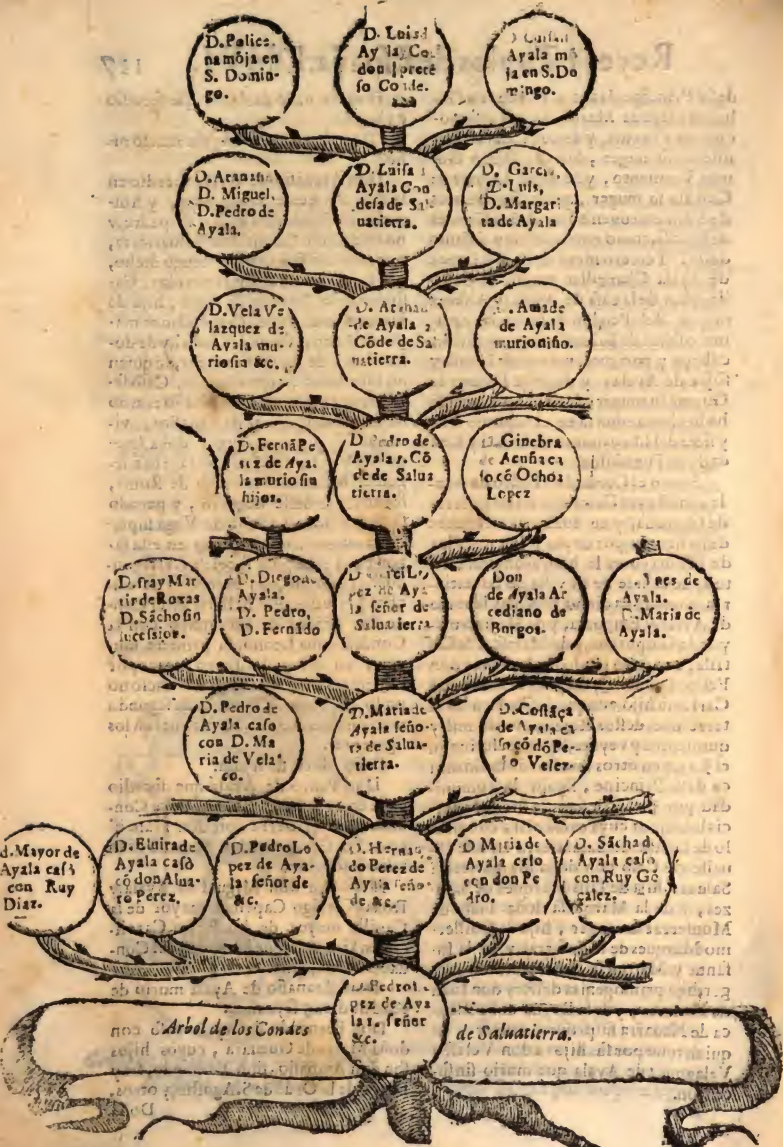 D. Police.
na mõja en
S. Domin-
go.
D. Luis d
Ay la, Co
don
so Conde.
Ayala mõ
ja en S. Do
mingo.
D. Atanasio
D. Miguel,
D. Pedro de
Ayala.
D. Luisa
Ayala Con
desa de Sal
uatierra.
D. Garcia,
D. Luis,
D. Margari
ta de Ayala
D. Vela Ve
lazquez de
Ayala mu-
rio sin &c.
D. Athan
de Ayala 2
Cõde de Sal
uatierra.
D. Ama de
de Ayala
murio niño.
D. Fernã Pe
rez de Aya.
la murio sin
hijos.
D Pedro de
Ayala 1. Cõ
de de Salua
tierra.
D. Ginebra
de Acuña ca
so cõ Ochoa
Lopez
D. fray Mar
tir de Roxas
D. Sãcho sin
sucession.
D. Diego de
Ayala.
D. Pedro,
D. Fernãdo
D Garci Lo
pez de Aya
la señor de
Saluatierra
Don
de Ayala Ar
cediano de
Borgos.
D. Ines de
Ayala.
D. Maria de
Ayala.
D. Pedro de
Ayala caso
con D. Ma
ria de Velas
co.
D. Maria de
Ayala seño-
ra de Salua-
tierra.
D. Costãça
de Ayala ca
so cõ dõ Pe-
ro Velez.
d. Mayor de
Ayala casò
con Ruy
Diaz.
D. Eluira de
Ayala casò
cõ don Alua-
ro Perez.
D. Pedro Lo
pez de Aya-
la señor de
&c.
D. Hernan
do Perez de
Ayala seño-
de &c.
D Maria de
Ayala caso
con don Pe
dro.
D. Sãcha d
Ayala caso
con Ruy Gõ
çalez.
D. Pedro Lo
pez de Aya
la 1. señor
&c.
Arbol de los Condes de Saluatierra.